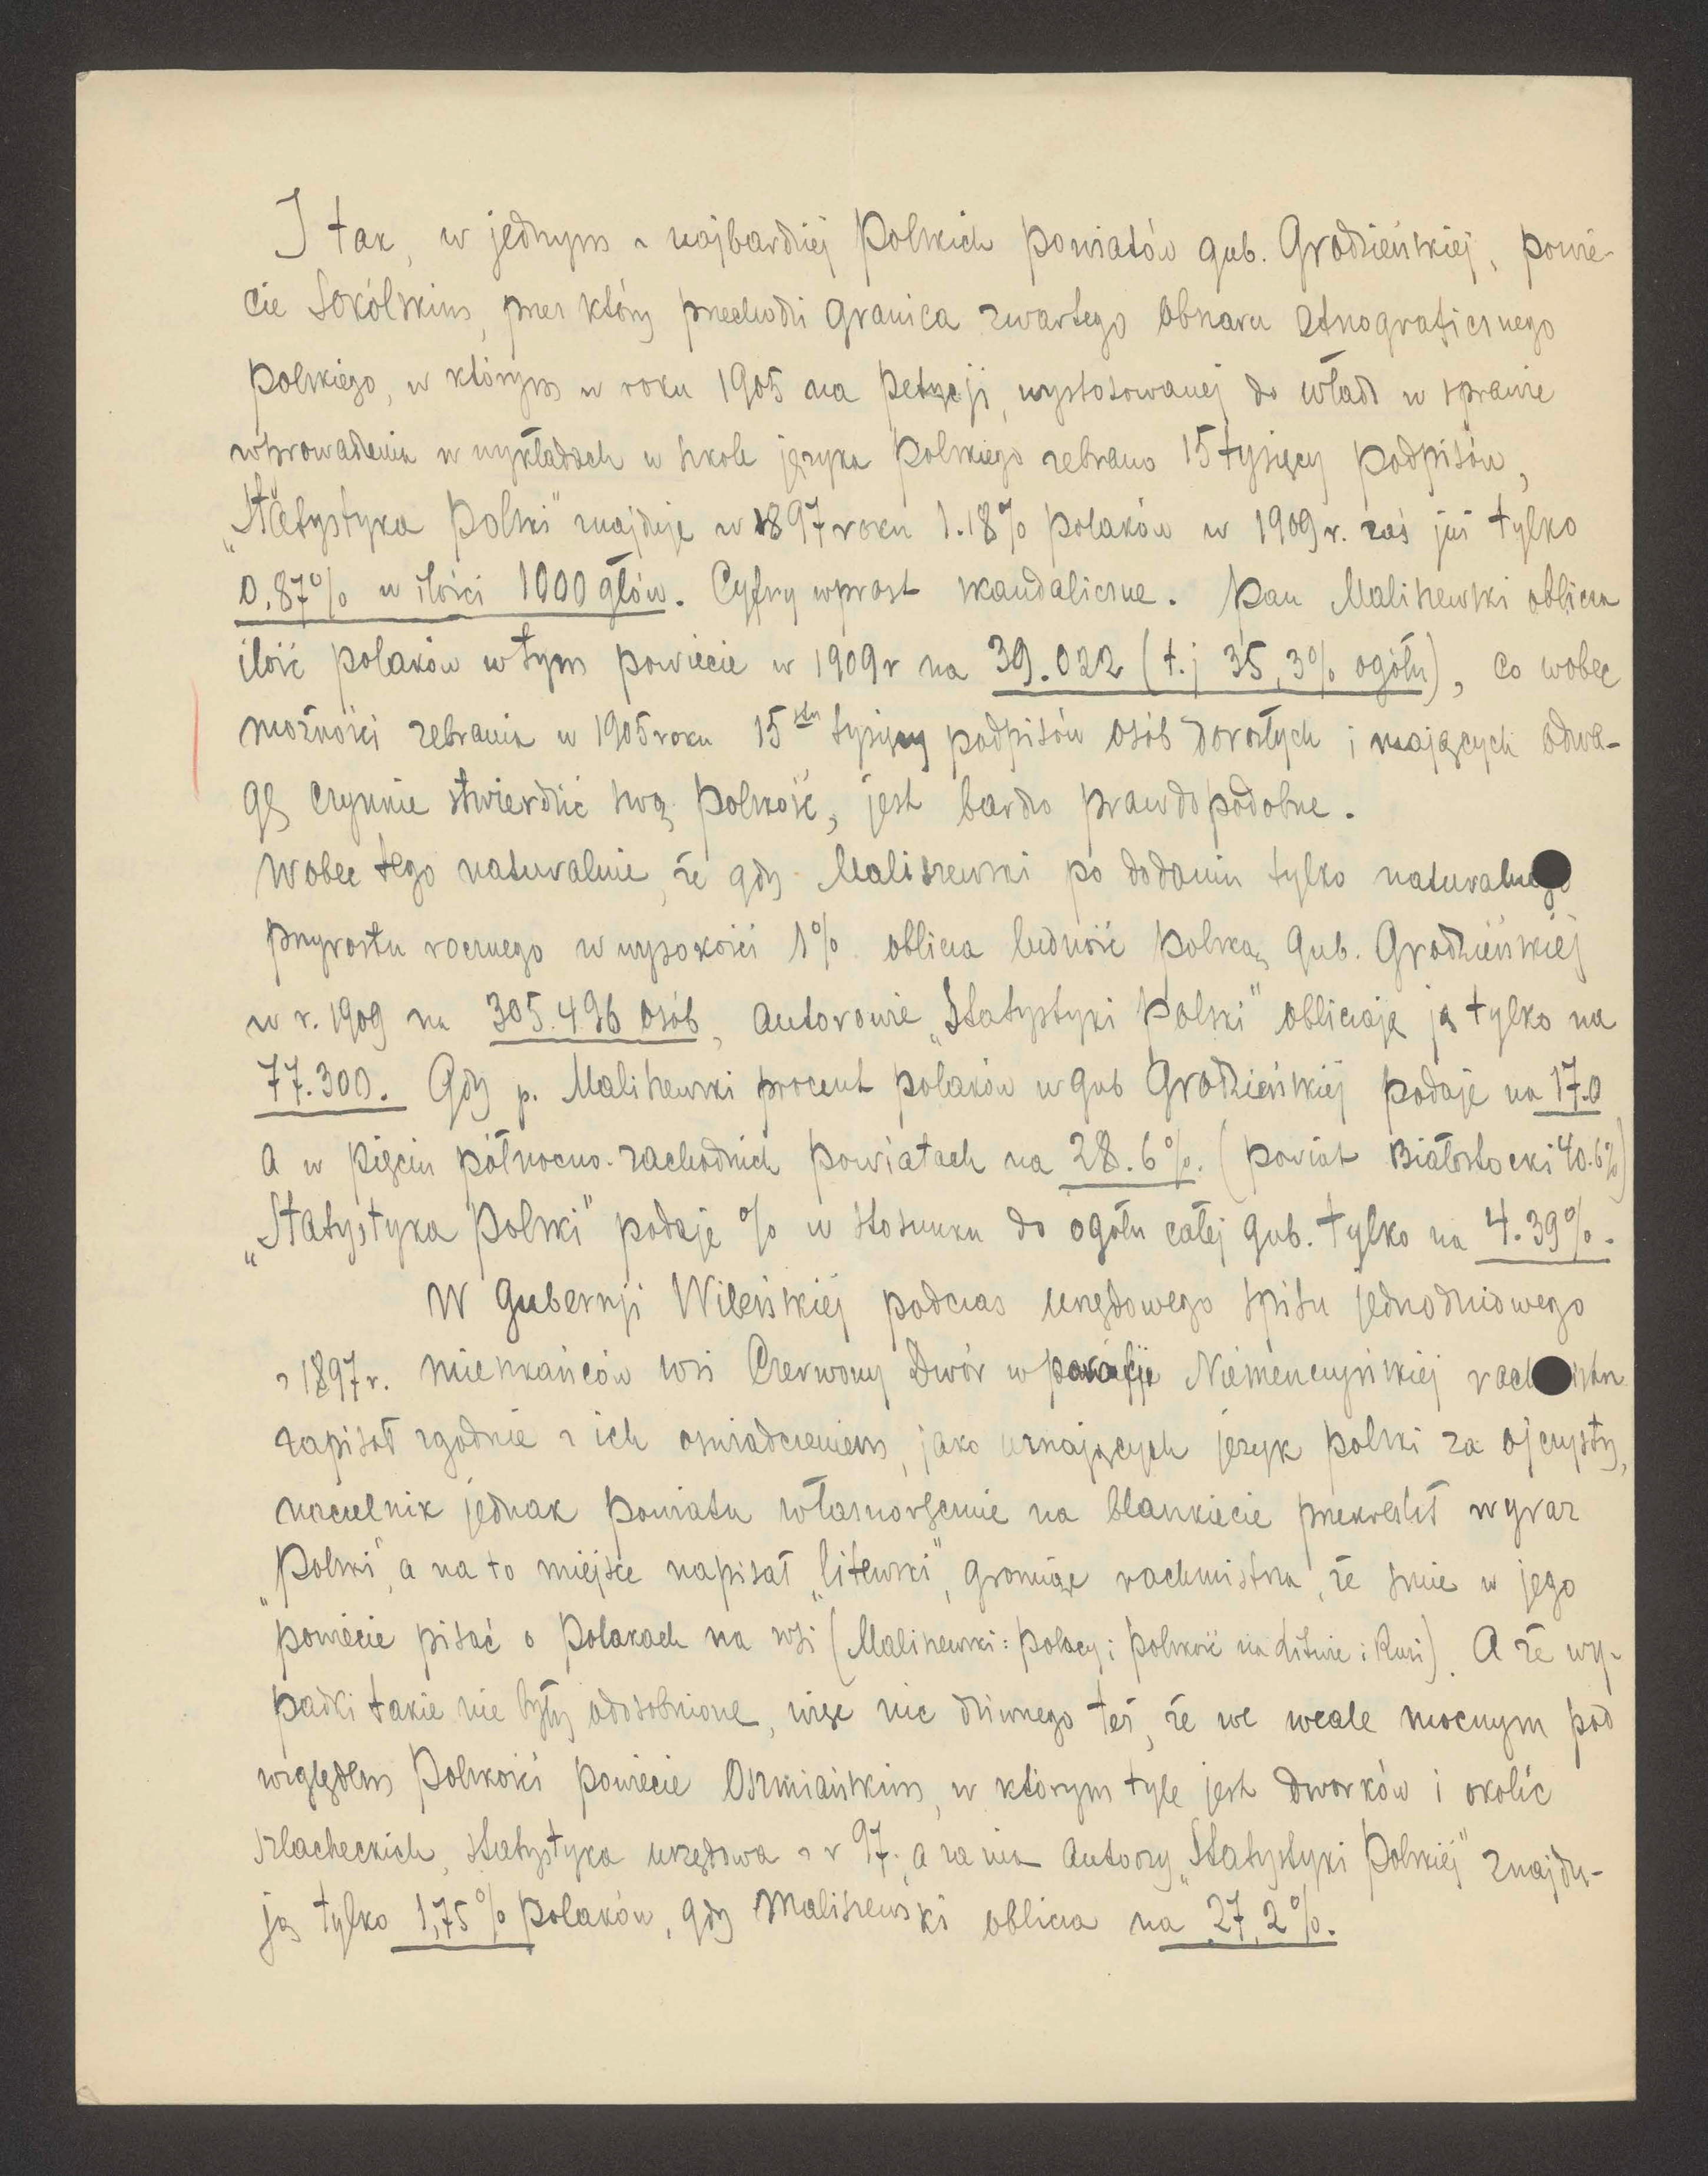 I tak, w jednym z najbardziej polskich powiatów gub. Grodzieńskiej, powie-
cie Sokólskim, przez który przechodzi granica zwartego obszaru etnograficznego
polskiego, w którym w roku 1905 na petycji, wystosowanej do władz w sprawie
wprowadzenia w wykładach w szkole języka polskiego zebrano 15 tysięcy podpisów,
„Statystyka Polski" znajduje w 1897 roku 1.18% polaków w 1909 r. zaś już tylko
0.87% w ilości 1000 głów. Cyfry wprost skandaliczne. Pan Maliszewski oblicza
ilość polaków w tym powiecie w 1909 r na 39.022 (t.j 35,3% ogółu), co wobec
możności zebrania w 1905 roku 15stu tysięcy podpisów osób dorosłych i mających odwa-
gę czynnie stwierdzić swą polskość, jest bardzo prawdopodobne.
Wobec tego naturalnie, że gdy Maliszewski po dodaniu tylko naturalnego
przyrostu rocznego w wysokości 1% oblicza ludność polską gub. Grodzieńskiej
w r. 1909 na 305.496 osób, autorowie „Statystyki Polski" obliczają ją tylko na
77.300. Gdy p. Maliszewski procent polaków w gub Grodzieńskiej podaje na 17.0
a w pięciu północno-zachodnich powiatach na 28.6%. (powiat Białostocki 40.6%)
„Statystyka Polski" podaje % w stosunku do ogółu całej gub. tylko na 4.39%.
W Gubernji Wileńskiej podczas urzędowego spisu jednodniowego
z 1897 r. mieszkańców wsi Czerwony Dwór w parafji Niemenczyńskiej rachmistrz
zapisał zgodnie z ich oświadczeniem, jako uznających język polski za ojczysty,
naczelnik jednak powiatu własnoręcznie na blankiecie przekreślił wyraz
„polski", a na to miejsce napisał „litewski", gromiąc rachmistrza, że śmie w jego
powiecie pisać o Polakach na wsi (Maliszewski: Polacy i polskość na Litwie i Rusi). A że wy-
padki takie nie były odosobnione, więc nic dziwnego też, że we wcale mocnym pod
względem polskości powiecie Oszmiańskim, w którym tyle jest dworków i okolic
szlacheckich, statystyka urzędowa z r 97, a za nią autorzy „Statystyki Polskiej" znajdu-
ją tylko 1,75% polaków, gdy Maliszewski oblicza na 27,2%.